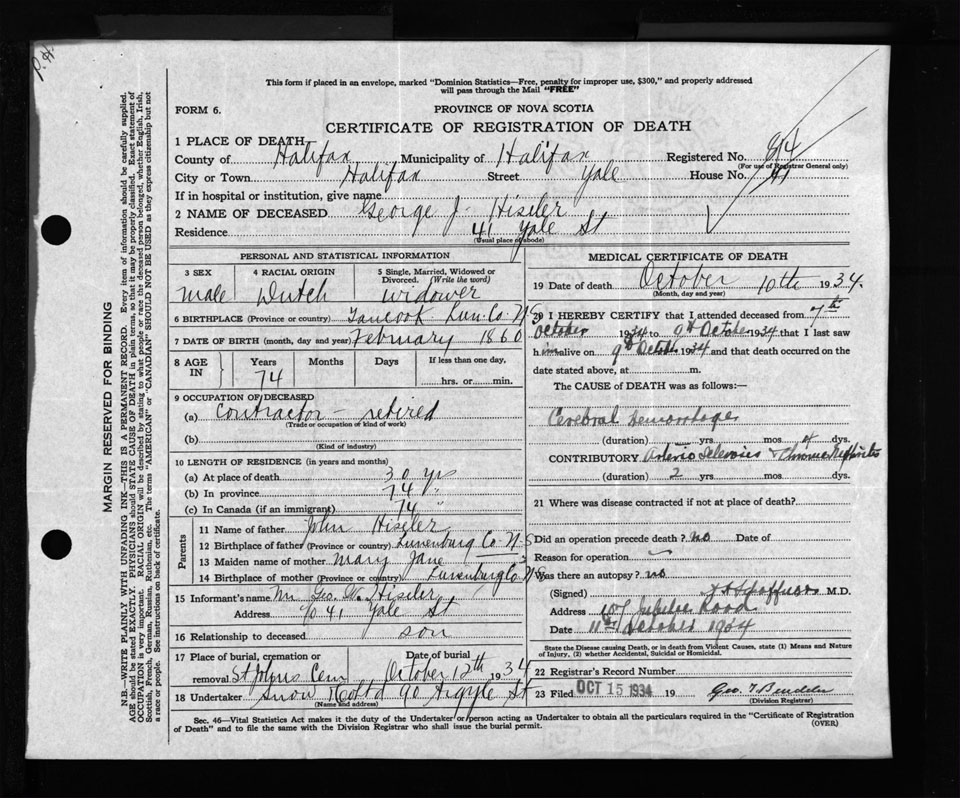 P.H.
This form if placed in an envelope, marked "Dominion Statistics—Free, penalty for improper use, $300," and properly addressed
will pass through the Mail "FREE"
FORM 6.
PROVINCE OF NOVA SCOTIA
CERTIFICATE OF REGISTRATION OF DEATH
1 PLACE OF DEATH
County of Halifax Municipality of Halifax Registered No. 814
(For use of Registrar General only)
City or Town Halifax Street Yale House No. 41
If in hospital or institution, give name
2 NAME OF DECEASED George J. Hiseler
Residence 41 Yale St
(Usual place of abode)
PERSONAL AND STATISTICAL INFORMATION
3 SEX 4 RACIAL ORIGIN 5 Single, Married, Widowed or
Divorced. (Write the word)
male Dutch widower
6 BIRTHPLACE (Province or country) Tancook Lun. Co. N.S
7 DATE OF BIRTH (month, day and year) February 1860
8 AGE IN Years Months Days If less than one day,
74 hrs. or min.
9 OCCUPATION OF DECEASED
(a) Contractor – retired
(Trade or occupation or kind of work)
(b)
(Kind of industry)
10 LENGTH OF RESIDENCE (in years and months)
(a) At place of death 30 yrs
(b) In province 74 "
(c) In Canada (if an immigrant) 74 "
Parents
11 Name of father John Hiseler
12 Birthplace of father (Province or country) Lunenburg Co N-S
13 Maiden name of mother Mary Jane
14 Birthplace of mother (Province or country) Lunenburg Co N.S
15 Informant's name Mr Geo. W. Hiseler
Address c/o 41 Yale St
16 Relationship to deceased son
17 Place of burial, cremation or Date of burial
removal St Johns Cem October 12th 1934
18 Undertaker Snow & Co Ltd 90 Argyle St
(Name and address)
MEDICAL CERTIFICATE OF DEATH
19 Date of death October 10th 1934.
(Month, day and year)
20 I HEREBY CERTIFY that I attended deceased from 7th
October 1934 to 9th October 1934 that I last saw
him alive on 9th October 1934 and that death occurred on the
date stated above, at m.
The CAUSE of DEATH was as follows:—
Cerebral Hemorrhage
(duration) yrs. mos 4 dys.
CONTRIBUTORY Arterio Sclerosis & Chronic Nephritis
(duration) 2 yrs. mos. dys.
21 Where was disease contracted if not at place of death?
Did an operation precede death? no Date of
Reason for operation
Was there an autopsy? no
(Signed) M.D.
Address 107 Jubilee Road
Date 11th October 1934
State the Disease causing Death, or in death from Violent Causes, state (1) Means and Nature
of Injury, (2) whether Accidental, Suicidal or Homicidal.
22 Registrar's Record Number
23 Filed OCT 15 1934 19 Geo. T
(Division Registrar)
Sec. 46—Vital Statistics Act makes it the duty of the Undertaker or person acting as Undertaker to obtain all the particulars required in the "Certificate of Registration
of Death" and to file the same with the Division Registrar who shall issue the burial permit. (OVER)
MARGIN RESERVED FOR BINDING
N.B.—WRITE PLAINLY WITH UNFADING INK—THIS IS A PERMANENT RECORD. Every item of information should be carefully supplied.
AGE should be stated EXACTLY. PHYSICIANS should STATE CAUSE OF DEATH in plain terms, so that it may be properly classified. Exact statement of
OCCUPATION is very important. RACIAL ORIGIN will be described by stating to what people or race the deceased person belonged, whether English, Irish,
Scottish, French, German, Russian, Ruthenian, etc. The terms "AMERICAN" or "CANADIAN" SHOULD NOT BE USED as they express citizenship but not
a race or people. See instructions on back of certificate.